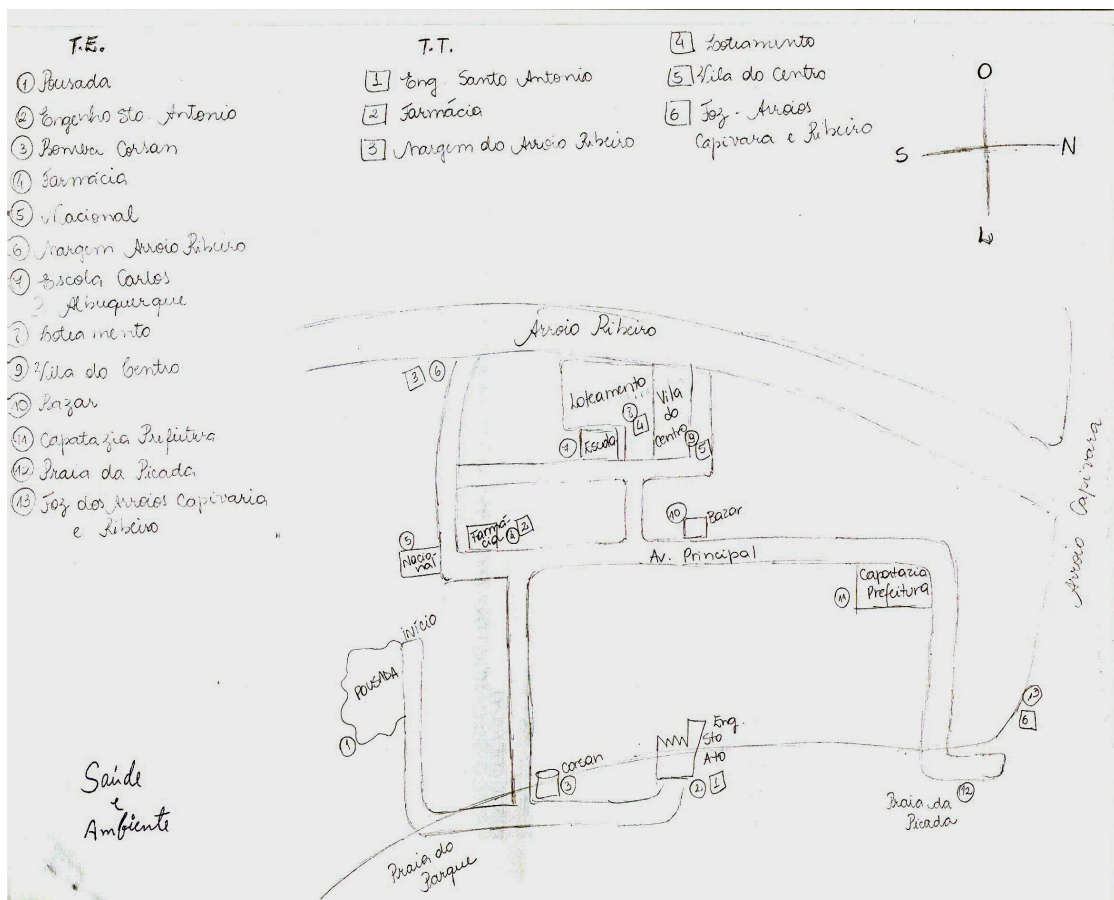 T.E.
① Pousada
② Engenho Sto. Antonio
③ Bomba Corsan
④ Farmácia
⑤ Nacional
⑥ Margem Arroio Ribeiro
⑦ Escola Carlos
Albuquerque
8 Loteamento
⑨ Vila do Centro
⑩ Bazar
⑪ Capatazia Prefeitura
⑫ Praia da Picada
⑬ Foz dos Arroios Capivaria
e Ribeiro
T.T.
1 Eng. Santo Antonio
2 Farmácia
3 Margem do Arroio Ribeiro
4 Loteamento
5 Vila do Centro
6 Foz - Arroios
Capivara e Ribeiro
O
S N
L
Arroio Ribeiro
3 ⑥
Loteamento
⑧
4
⑦ Escola
Vila
do
Centro
⑨
5
Arroio Capivara
⑩ Bazar
Farmá-
cia ④ 2
⑤
Nacio-
nal
Av. Principal
Capatazia
Prefeitura
⑪
Início
POUSADA
①
Eng.
Sto
Ato
② 1
Corsan
③
⑬
6
Praia da
Picada
⑫
Praia do
Parque
Saúde
e
Ambiente